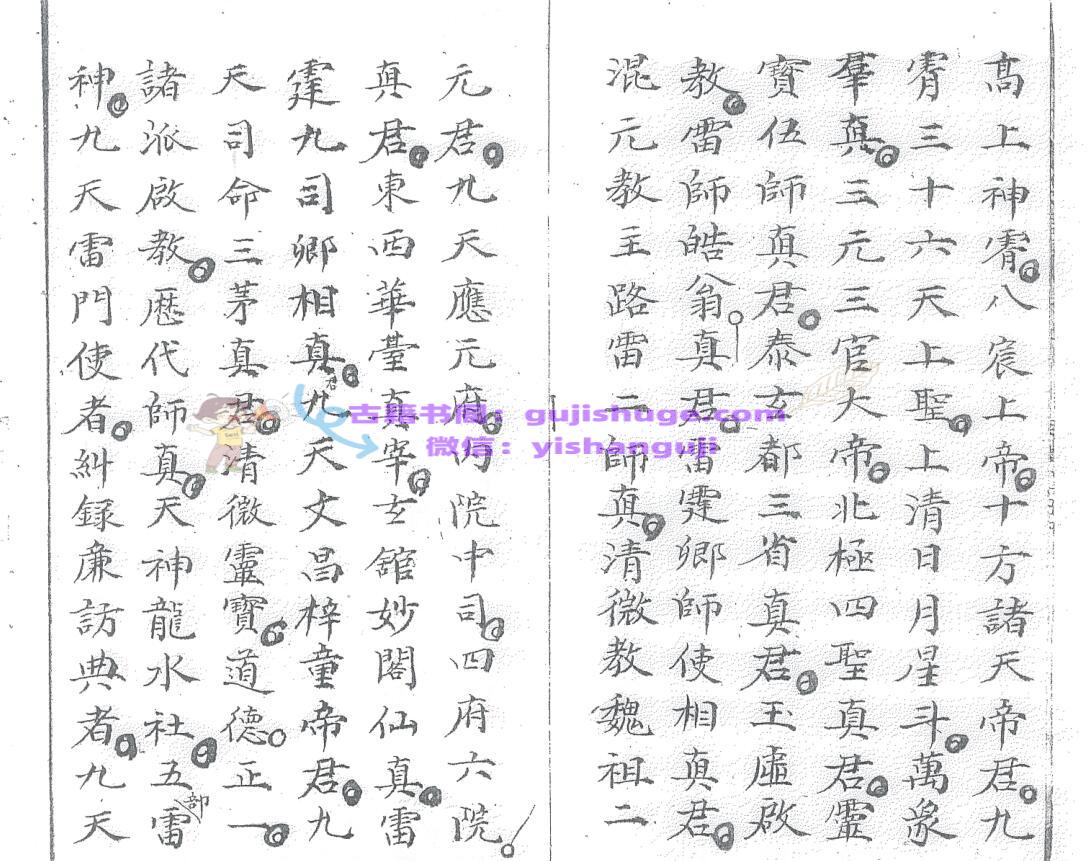 高上神霄八宸上帝十方諸天帝君九
霄三十六天上聖上清日月星斗萬象
羣真三元三官大帝北極四聖真君靈
寶伍師真君泰玄都三省真君玉虛啟
教雷師皓翁真君雷霆卿師使相真君
混元教主路雷二師真清微教魏祖二
元君九天應元府內院中司四府六院
真君東西華臺真宰玄館妙閣仙真雷
霆九司卿相真君九天文昌梓童帝君九
天司命三茅真君清微靈寶道德正一
諸派啟教歷代師真天神龍水社五雷部
神九天雷門使者糾錄廉訪典者九天
古籍书阁：gujishuge.com
微信：yishanguji